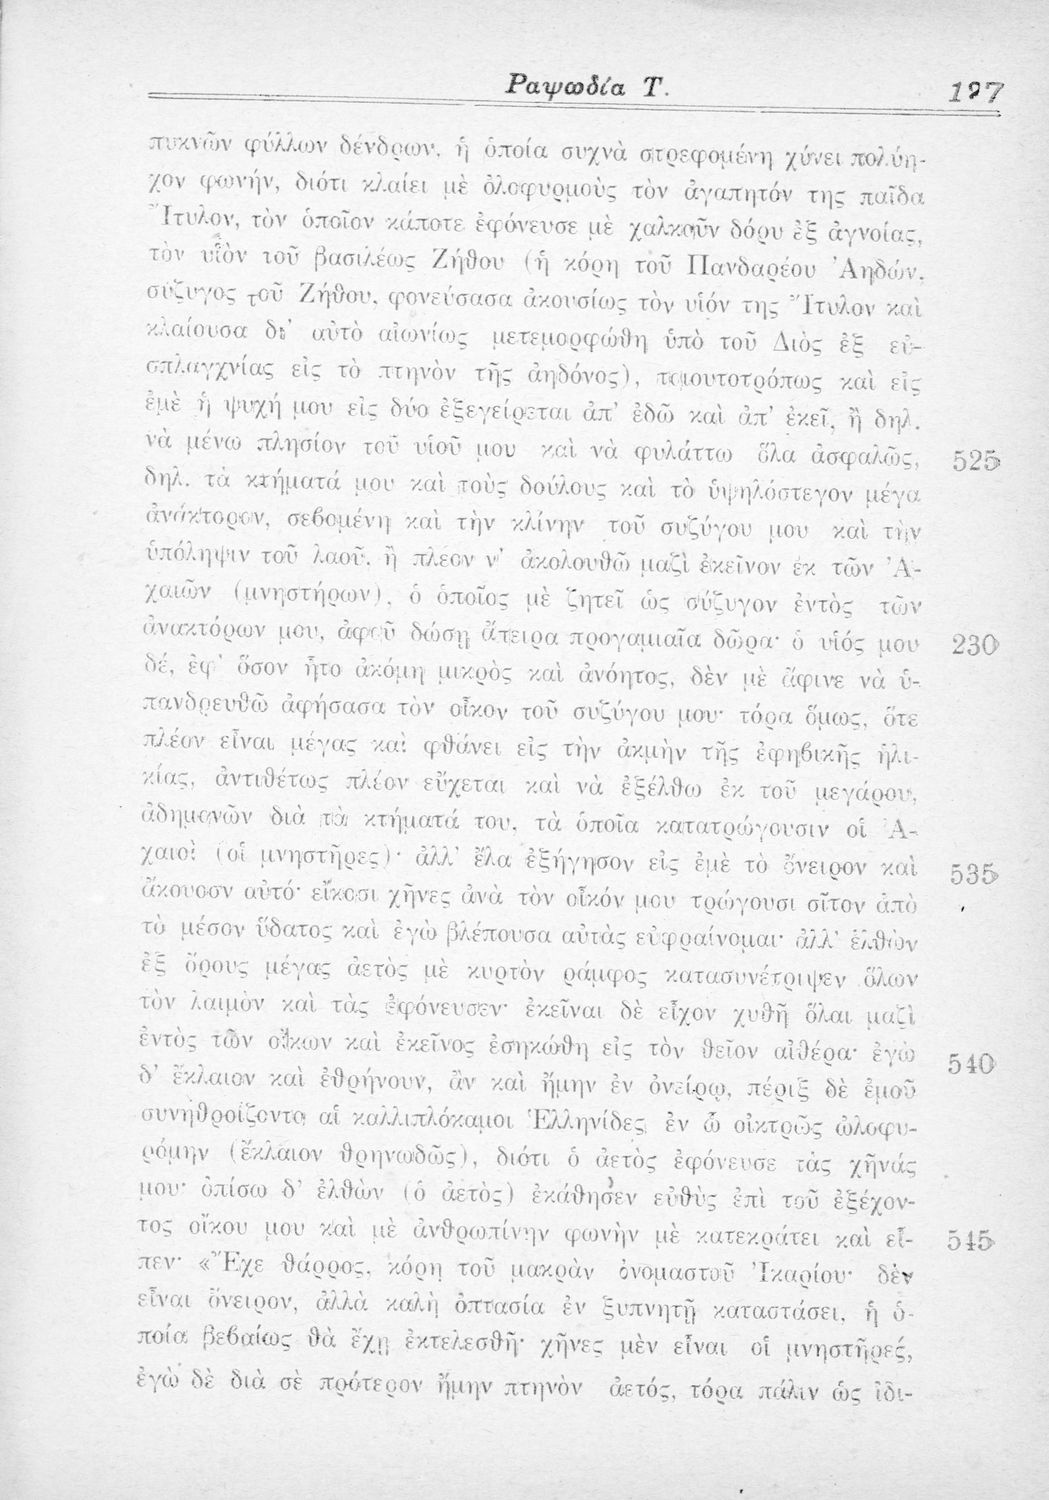 Ραψωδία Τ. 127
πυκνῶν φύλλων δένδρων, ἡ ὁποία συχνὰ στρεφομένη χύνει πολύη-
χον φωνήν, διότι κλαίει μὲ ὀλοφυρμοὺς τὸν ἀγαπητόν της παῖδα
Ἴτυλον, τὸν ὁποῖον κάποτε ἐφόνευσε μὲ χαλκοῦν δόρυ ἐξ ἀγνοίας,
τὸν υἱὸν τοῦ βασιλέως Ζήθου (ἡ κόρη τοῦ Πανδαρέου Ἀηδών,
σύζυγος τοῦ Ζήθου, φονεύσασα ἀκουσίως τὸν υἱόν της Ἴτυλον καὶ
κλαίουσα δι' αὐτὸ αἰωνίως μετεμορφώθη ὑπὸ τοῦ Διὸς ἐξ εὐ-
σπλαγχνίας εἰς τὸ πτηνὸν τῆς ἀηδόνος), τοιουτοτρόπως καὶ εἰς
ἐμὲ ἡ ψυχή μου εἰς δύο ἐξεγείρεται ἀπ' ἐδῶ καὶ ἀπ' ἐκεῖ, ἢ δηλ.
νὰ μένω πλησίον τοῦ υἱοῦ μου καὶ νὰ φυλάττω ὅλα ἀσφαλῶς, 525
δηλ. τὰ κτήματά μου καὶ τοὺς δούλους καὶ τὸ ὑψηλόστεγον μέγα
ἀνάκτορον, σεβομένη καὶ τὴν κλίνην τοῦ συζύγου μου καὶ τὴν
ὑπόληψιν τοῦ λαοῦ, ἢ πλέον ν' ἀκολουθῶ μαζὶ ἐκεῖνον ἐκ τῶν Ἀ-
χαιῶν (μνηστήρων), ὁ ὁποῖος μὲ ζητεῖ ὡς σύζυγον ἐντὸς τῶν
ἀνακτόρων μου, ἀφοῦ δώσῃ ἄπειρα προγαμιαῖα δῶρα· ὁ υἱός μου 230
δέ, ἐφ' ὅσον ἦτο ἀκόμη μικρὸς καὶ ἀνόητος, δὲν μὲ ἄφινε νὰ ὑ-
πανδρευθῶ ἀφήσασα τὸν οἶκον τοῦ συζύγου μου· τόρα ὅμως, ὅτε
πλέον εἶναι μέγας καὶ φθάνει εἰς τὴν ἀκμὴν τῆς ἐφηβικῆς ἡλι-
κίας, ἀντιθέτως πλέον εὔχεται καὶ νὰ ἐξέλθω ἐκ τοῦ μεγάρου,
ἀδημονῶν διὰ τὰ κτήματά του, τὰ ὁποῖα κατατρώγουσιν οἱ Ἀ-
χαιοὶ (οἱ μνηστῆρες)· ἀλλ' ἔλα ἐξήγησον εἰς ἐμὲ τὸ ὄνειρον καὶ 535
ἄκουσον αὐτό· εἴκοσι χῆνες ἀνὰ τὸν οἶκόν μου τρώγουσι σῖτον ἀπὸ
τὸ μέσον ὕδατος καὶ ἐγὼ βλέπουσα αὐτὰς εὐφραίνομαι· ἀλλ' ἐλθὼν
ἐξ ὄρους μέγας ἀετὸς μὲ κυρτὸν ράμφος κατασυνέτριψεν ὅλων
τὸν λαιμὸν καὶ τὰς ἐφόνευσεν· ἐκεῖναι δὲ εἶχον χυθῆ ὅλαι μαζὶ
ἐντὸς τῶν οἴκων καὶ ἐκεῖνος ἐσηκώθη εἰς τὸν θεῖον αἰθέρα· ἐγὼ 540
δ' ἔκλαιον καὶ ἐθρήνουν, ἂν καὶ ἤμην ἐν ὀνείρῳ, πέριξ δὲ ἐμοῦ
συνηθροίζοντο αἱ καλλιπλόκαμοι Ἑλληνίδες, ἐν ᾧ οἰκτρῶς ὠλοφυ-
ρόμην (ἔκλαιον θρηνωδῶς), διότι ὁ ἀετὸς ἐφόνευσε τὰς χῆνάς
μου· ὀπίσω δ' ἐλθὼν (ὁ ἀετὸς) ἐκάθησεν εὐθὺς ἐπὶ τοῦ ἐξέχον-
τος οἴκου μου καὶ μὲ ἀνθρωπίνην φωνὴν μὲ κατεκράτει καὶ εἶ- 545
πεν· «Ἔχε θάρρος, κόρη τοῦ μακρὰν ὀνομαστοῦ Ἰκαρίου· δὲν
εἶναι ὄνειρον, ἀλλὰ καλὴ ὀπτασία ἐν ξυπνητῇ καταστάσει, ἡ ὁ-
ποία βεβαίως θὰ ἔχῃ ἐκτελεσθῆ· χῆνες μὲν εἶναι οἱ μνηστῆρές,
ἐγὼ δὲ διὰ σὲ πρότερον ἤμην πτηνὸν ἀετός, τόρα πάλιν ὡς ἰδι-